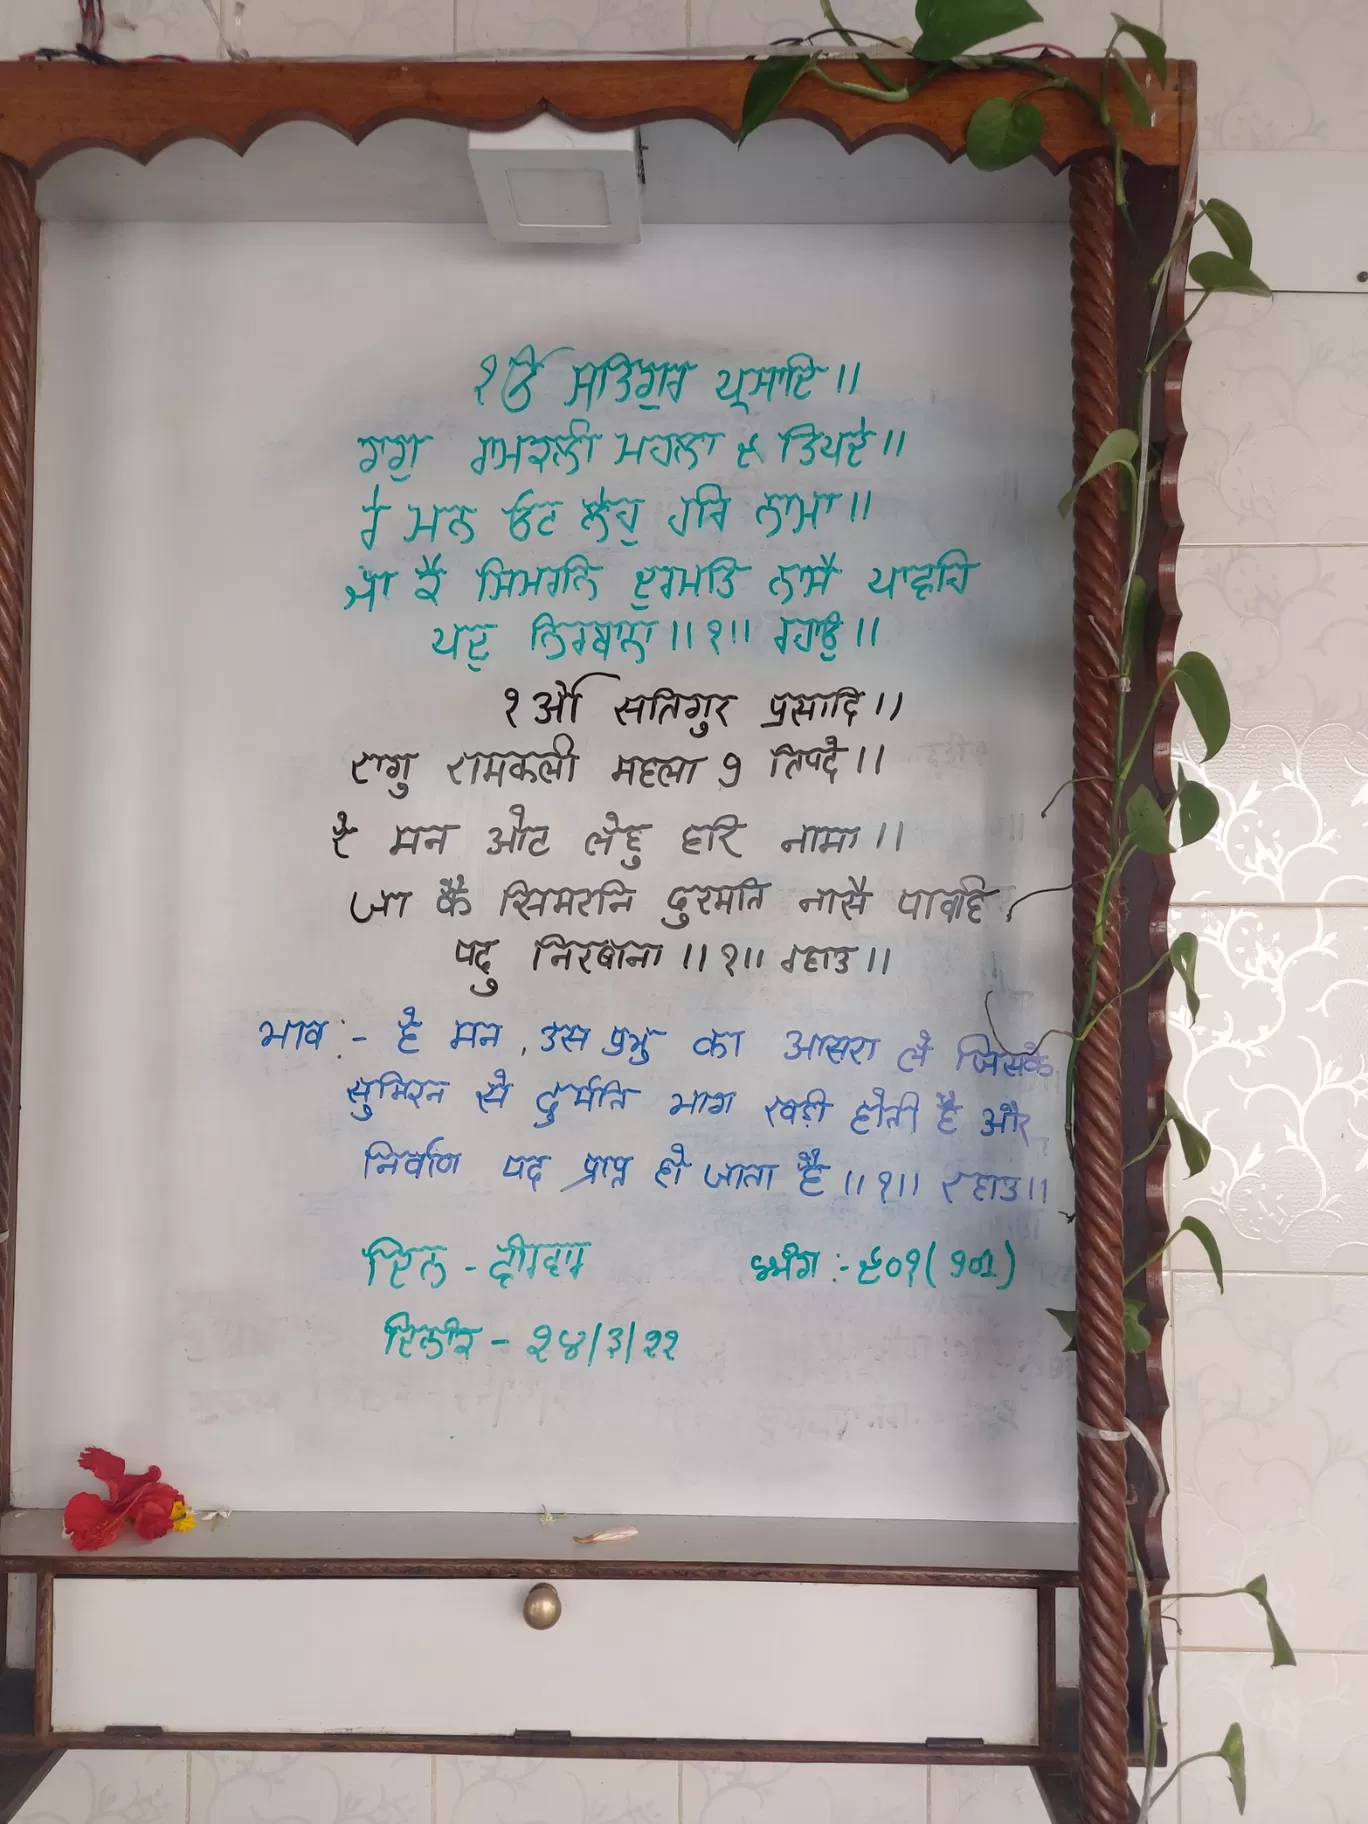 ੧ਓ ਸਤਿਗੁਰ ਪ੍ਰਸਾਦਿ॥
ਰਾਗੁ ਰਾਮਕਲੀ ਮਹਲਾ ੯ ਤਿਪਦੇ॥
ਰੇ ਮਨ ਓਟ ਲੇਹੁ ਹਰਿ ਨਾਮਾ॥
ਜਾ ਕੈ ਸਿਮਰਨਿ ਦੁਰਮਤਿ ਨਾਸੈ ਪਾਵਹਿ
ਪਦੁ ਨਿਰਬਾਨਾ॥੧॥ ਰਹਾਉ॥
१ओ सतिगुर प्रसादि॥
रागु रामकली महला 9 तिपदे॥
रे मन ओट लेहु हरि नामा॥
जा कै सिमरनि दुरमति नासै पावहि
पदु निरबाना॥१॥ रहाउ॥
भाव:- हे मन, उस प्रभु का आसरा ले जिसके
सुमिरन से दुर्मति भाग खड़ी होती है और
निर्वाण पद प्राप्त हो जाता है॥१॥ रहाउ॥
ਦਿਨ - ਵੀਰਵਾਰ ਅੰਗ:- ੯੦੧ (901)
- ੨੪/੩/੨੨